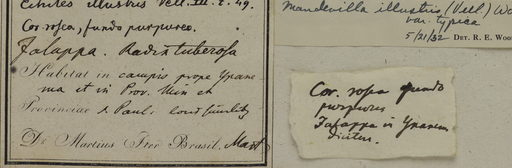 Echites illustris Vell. III. t. 49.
Cor. rosea, fundo purpureo.
Jalappa. Radix tuberosa
Habitat in campis prope Ypane
ma et in Prov. Min et
Provinciae S. Paul.
Dr Martius Iter Brasil. Mart
Mandevilla illustris (Vell.) Wo
var. typica
5/21/32 DET. R. E. WOO
Cor. rosea fundo
purpureo
Jalappa in Ypanem
dicitur.